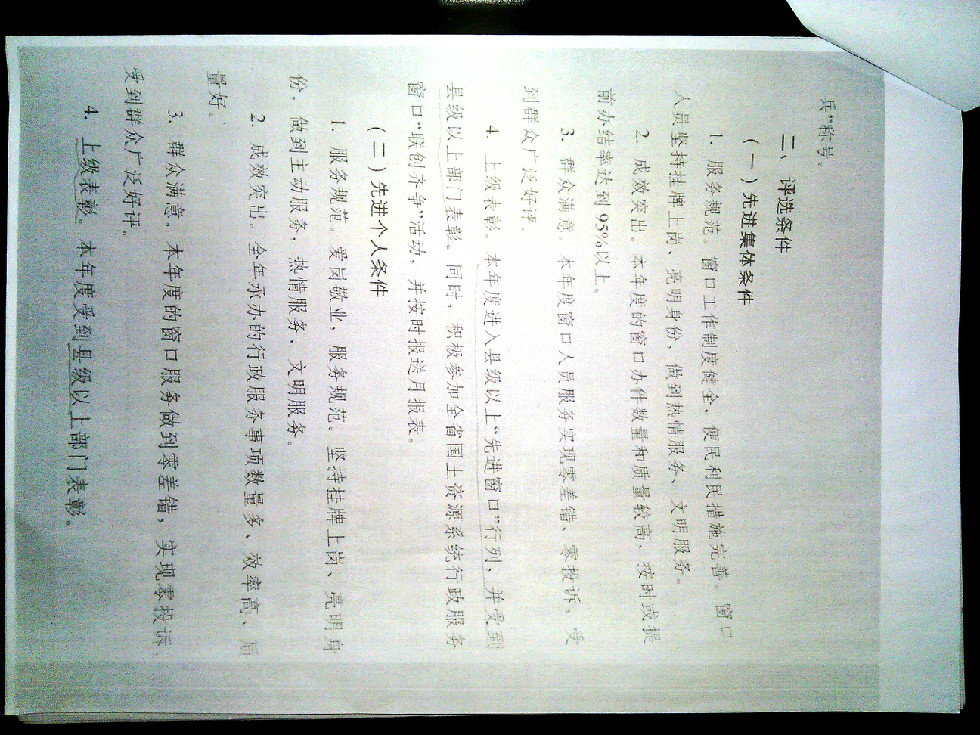 兵”称号。
二、评选条件
（一）先进集体条件
1、服务规范。窗口工作制度健全、便民利民措施完善。窗口
人员坚持挂牌上岗、亮明身份，做到热情服务、文明服务。
2、成效突出。本年度的窗口办件数量和质量较高、按时或提
前办结率达到95%以上。
3、群众满意。本年度窗口人员服务实现零差错、零投诉、受
到群众广泛好评。
4、上级表彰。本年度进入县级以上“先进窗口”行列、并受到
县级以上部门表彰。同时、积极参加全省国土资源系统行政服务
窗口“联创齐争”活动，并按时报送月报表。
（二）先进个人条件
1、服务规范。爱岗敬业，服务规范。坚持挂牌上岗、亮明身
份，做到主动服务，热情服务，文明服务。
2、成效突出。全年承办的行政服务事项数量多、效率高、质
量好。
3、群众满意。本年度的窗口服务做到零差错，实现零投诉，
受到群众广泛好评。
4、上级表彰。本年度受到县级以上部门表彰。